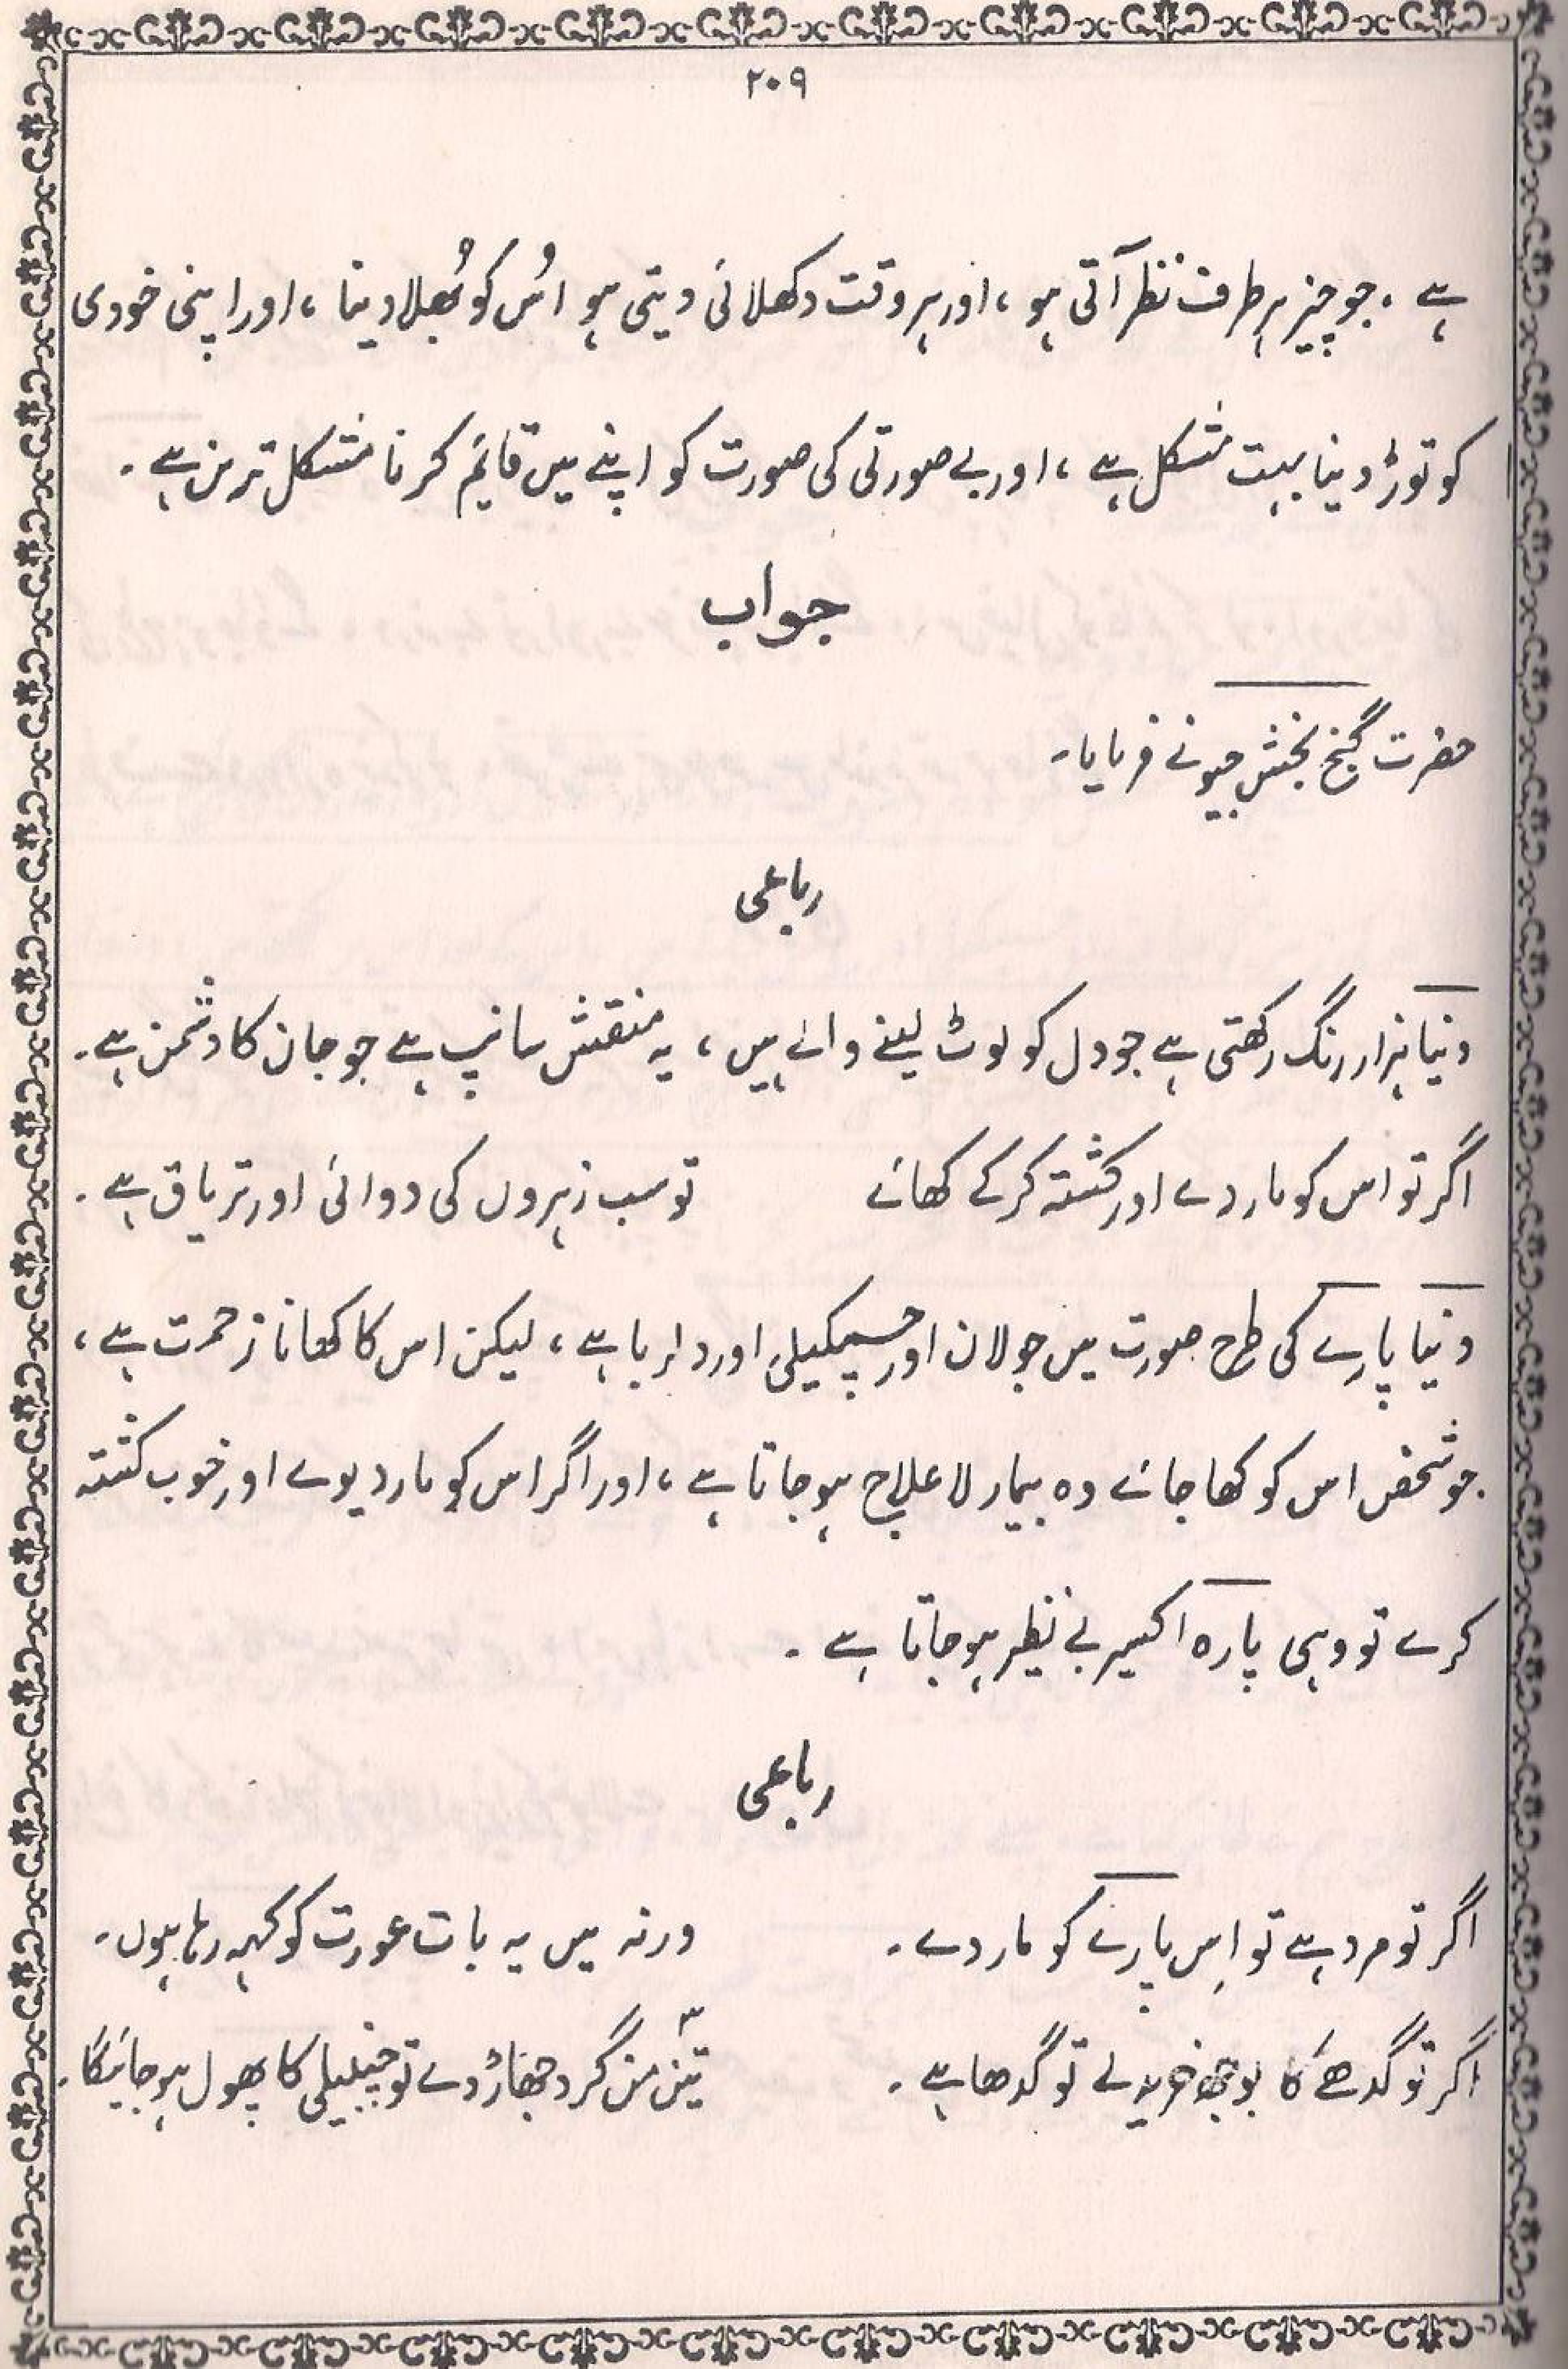 ۲۰۹
ہے ۔ جو چیز ہر طرف نظر آتی ہو ، اور ہر وقت دکھلائی دیتی ہو اُس کو بُھلا دینا ، اور اپنی خودی
کو توڑ دینا بہت مشکل ہے ، اور بے صورتی کی صورت کو اپنے میں قایٔم کرنا مشکل ترین ہے ۔
جواب
حضرت گنج بخش جیو نے فرمایا۔
رباعی
دنیا ہزار رنگ رکھتی ہے جو دل کو لوٹ لینے والے ہیں ، یہ منقش سانپ ہے جو جان کا دشمن ہے۔
اگر تو اس کو مار دے اور کشتہ کر کے کھائے تو سب زہروں کی دوائی اور تریاق ہے ۔
دنیا پارے کی طرح صورت میں جولان اور چمکیلی اور دلربا ہے ، لیکن اس کا کھانا زحمت ہے ،
جو شخص اس کو کھا جائے وہ بیمار لا علاج ہو جاتا ہے ، اور اگر اس کو مار دیوے اور خوب کشتہ
کرے تو وہی پارہ اکسیر بے نظیر ہو جاتا ہے ۔
رباعی
اگر تو مرد ہے تو اِس پارے کو مار دے ۔ ورنہ میں یہ بات عورت کو کہہ رہا ہوں۔
اگر تو گدھے کا بوجھ خرید لے تو گدھا ہے ۔ تین من گرد جھاڑ دے تو چنبیلی کا پھول ہو جائیگا ۔